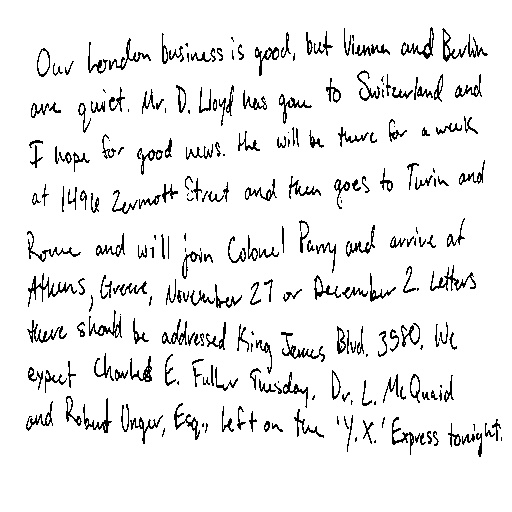 Our London business is good, but Vienna and Berlin
are quiet. Mr. D. Lloyd has gone to Switzerland and
I hope for good news. He will be there for a week
at 1496 Zermott Street and then goes to Turin and
Rome and will join Colonel Parry and arrive at
Athens, Greece, November 27 or December 2. Letters
there should be addressed King James Blvd. 3580. We
expect Charles E. Fuller Tuesday. Dr. L. McQuaid
and Robert Unger, Esq., left on the 'Y.X.' Express tonight.